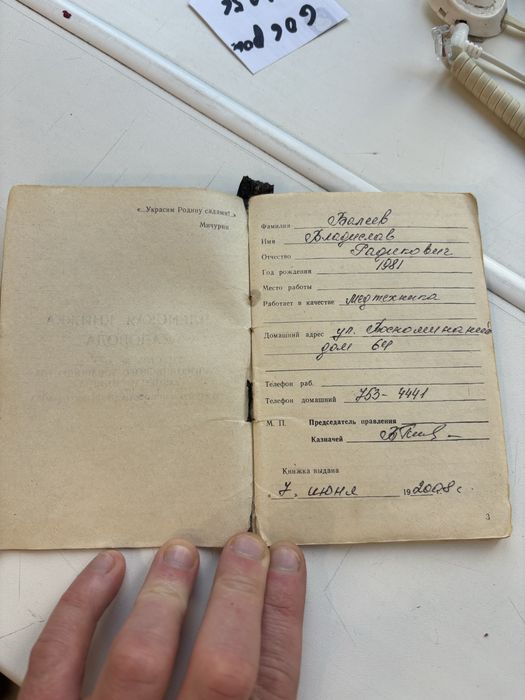 606 рок
«...Украсим Родину садами!..»
Мичурин
Фамилия Валеев
Имя Владислав
Отчество Радикович
Год рождения 1981
Место работы
Работает в качестве Медтехника
Домашний адрес ул.
дом 64
Телефон раб.
Телефон домашний 753-4441
М. П. Председатель правления
Казначей
Книжка выдана
„7„ июня 192008 г.
3